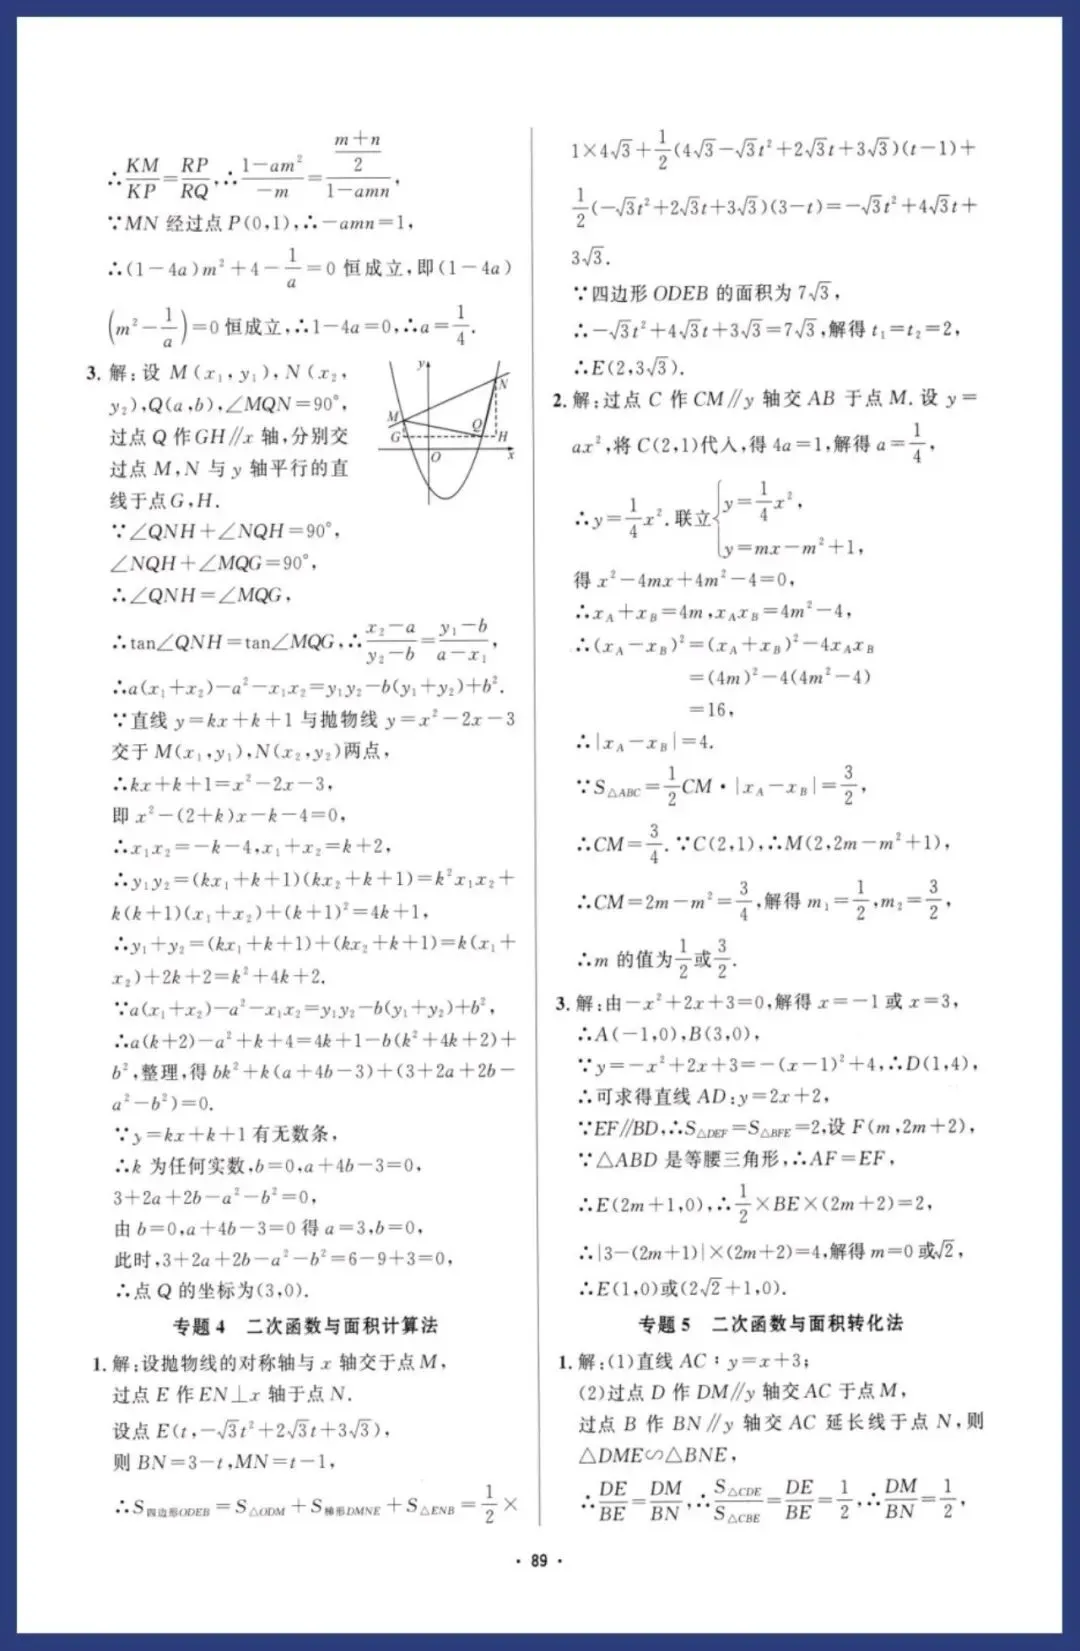 ∴KM/KP=RP/RQ,∴(1-am²)/(-m)=((m+n)/2)/(1-amn),
∵MN 经过点 P(0,1),∴-amn=1,
∴(1-4a)m²+4-1/a=0 恒成立,即(1-4a)
(m²-1/a)=0 恒成立,∴1-4a=0,∴a=1/4.
3. 解:设 M(x₁,y₁),N(x₂,
y₂),Q(a,b),∠MQN=90°,
过点 Q 作GH∥x 轴,分别交
过点 M,N 与 y 轴平行的直
线于点G,H.
y
N
M
G
Q
H
O
x
∵∠QNH+∠NQH=90°,
∠NQH+∠MQG=90°,
∴∠QNH=∠MQG,
∴tan∠QNH=tan∠MQG,∴(x₂-a)/(y₂-b)=(y₁-b)/(a-x₁),
∴a(x₁+x₂)-a²-x₁x₂=y₁y₂-b(y₁+y₂)+b².
∵直线 y=kx+k+1 与抛物线 y=x²-2x-3
交于 M(x₁,y₁),N(x₂,y₂)两点,
∴kx+k+1=x²-2x-3,
即 x²-(2+k)x-k-4=0,
∴x₁x₂=-k-4,x₁+x₂=k+2,
∴y₁y₂=(kx₁+k+1)(kx₂+k+1)=k²x₁x₂+
k(k+1)(x₁+x₂)+(k+1)²=4k+1,
∴y₁+y₂=(kx₁+k+1)+(kx₂+k+1)=k(x₁+
x₂)+2k+2=k²+4k+2.
∵a(x₁+x₂)-a²-x₁x₂=y₁y₂-b(y₁+y₂)+b²,
∴a(k+2)-a²+k+4=4k+1-b(k²+4k+2)+
b²,整理,得 bk²+k(a+4b-3)+(3+2a+2b-
a²-b²)=0.
∵y=kx+k+1 有无数条,
∴k 为任何实数,b=0,a+4b-3=0,
3+2a+2b-a²-b²=0,
由 b=0,a+4b-3=0 得 a=3,b=0,
此时,3+2a+2b-a²-b²=6-9+3=0,
∴点 Q 的坐标为(3,0).
专题 4 二次函数与面积计算法
1. 解:设抛物线的对称轴与 x 轴交于点 M,
过点 E 作 EN⊥x 轴于点 N.
设点 E(t,-√3t²+2√3t+3√3),
则 BN=3-t,MN=t-1,
∴S四边形ODEB=S△ODM+S梯形DMNE+S△ENB=1/2×
1×4√3+1/2(4√3-√3t²+2√3t+3√3)(t-1)+
1/2(-√3t²+2√3t+3√3)(3-t)=-√3t²+4√3t+
3√3.
∵四边形 ODEB 的面积为 7√3,
∴-√3t²+4√3t+3√3=7√3,解得 t₁=t₂=2,
∴E(2,3√3).
2. 解:过点 C 作 CM∥y 轴交 AB 于点 M. 设 y=
ax²,将 C(2,1)代入,得 4a=1,解得 a=1/4,
∴y=1/4x². 联立{y=1/4x²,
y=mx-m²+1,
得 x²-4mx+4m²-4=0,
∴xA+xB=4m,xAxB=4m²-4,
∴(xA-xB)²=(xA+xB)²-4xAxB
=(4m)²-4(4m²-4)
=16,
∴|xA-xB|=4.
∵S△ABC=1/2CM·|xA-xB|=3/2,
∴CM=3/4. ∵C(2,1),∴M(2,2m-m²+1),
∴CM=2m-m²=3/4,解得 m₁=1/2,m₂=3/2,
∴m 的值为1/2或3/2.
3. 解:由-x²+2x+3=0,解得 x=-1 或 x=3,
∴A(-1,0),B(3,0),
∵y=-x²+2x+3=-(x-1)²+4,∴D(1,4),
∴可求得直线 AD:y=2x+2,
∵EF∥BD,∴S△DEF=S△BFE=2,设 F(m,2m+2),
∵△ABD 是等腰三角形,∴AF=EF,
∴E(2m+1,0),∴1/2×BE×(2m+2)=2,
∴|3-(2m+1)|×(2m+2)=4,解得 m=0 或√2,
∴E(1,0)或(2√2+1,0).
专题 5 二次函数与面积转化法
1. 解:(1)直线 AC:y=x+3;
(2)过点 D 作 DM∥y 轴交 AC 于点 M,
过点 B 作 BN∥y 轴交 AC 延长线于点 N,则
△DME∽△BNE,
∴DE/BE=DM/BN,∴S△CDE/S△CBE=DE/BE=1/2,∴DM/BN=1/2,
· 89 ·